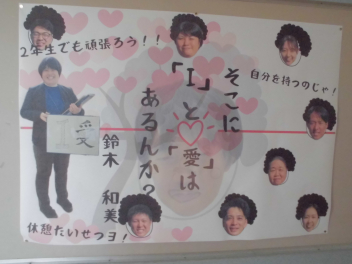 2年生でも頑張ろう!!
自分を持つのじゃ!
そこに
「I」と「愛」は
あるんか?
愛
鈴木 和美
休憩たいせつヨ!